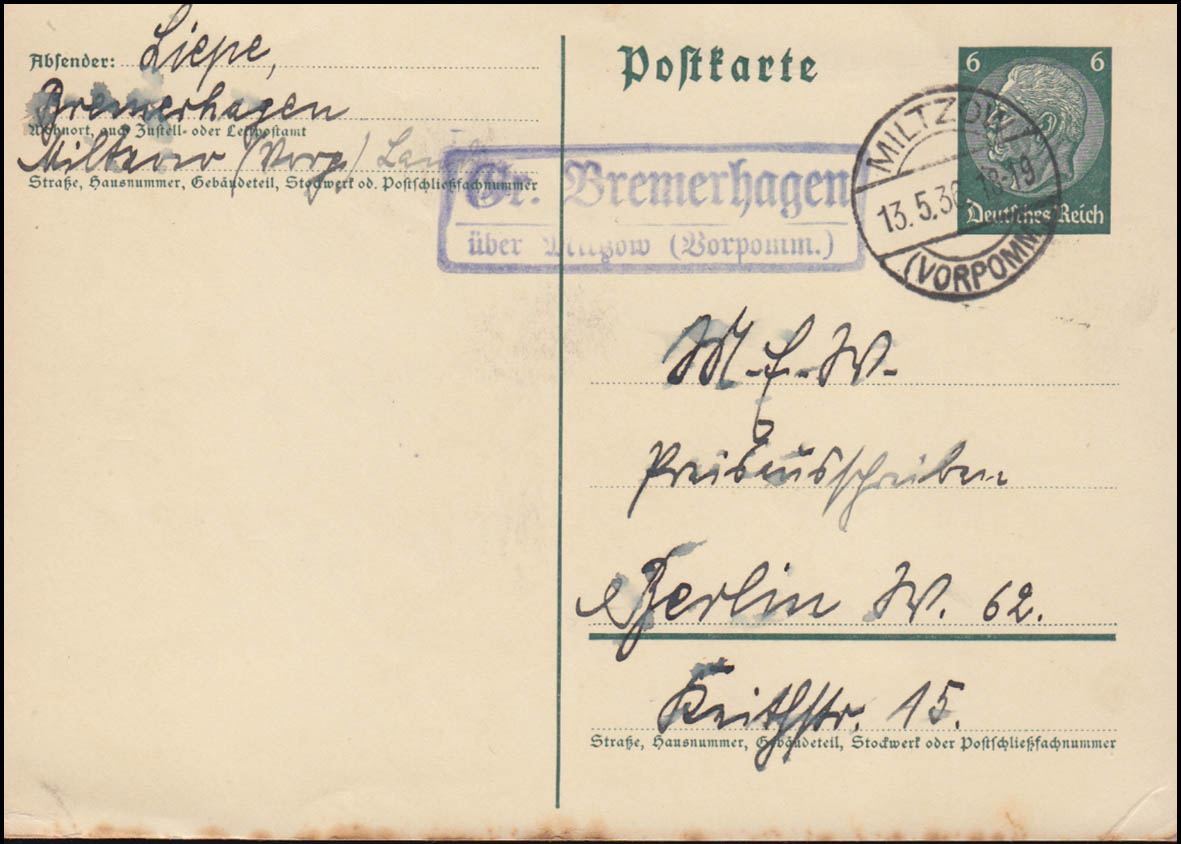 Absender: Liepe,
Bremerhagen
Wohnort, auch Zustell- oder Leitpostamt
Miltzow (Vorp)
Straße, Hausnummer, Gebäudeteil, Stockwerk od. Postschließfachnummer
Gr. Bremerhagen
über Miltzow (Vorpomm.)
Postkarte
6 6
Deutsches Reich
MILTZOW
13.5.36 18-19
(VORPOMM)
M.E.W.
Preisausschreiben
Berlin W. 62.
Keithstr. 15.
Straße, Hausnummer, Gebäudeteil, Stockwerk oder Postschließfachnummer